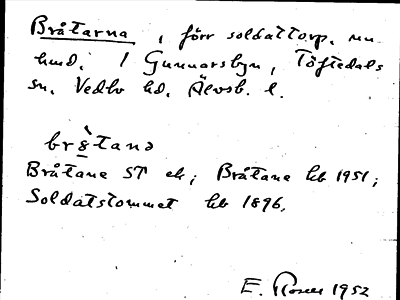 Bråtarna, förr soldattorp, nu
hmd. / Gunnarsbyn, Töftedals
sn. Vedbo hd. Älvsb. l.
brå̀tanə
Bråtane ST ek; Bråtane kb 1951;
Soldatstommet kb 1896.
E. 1952